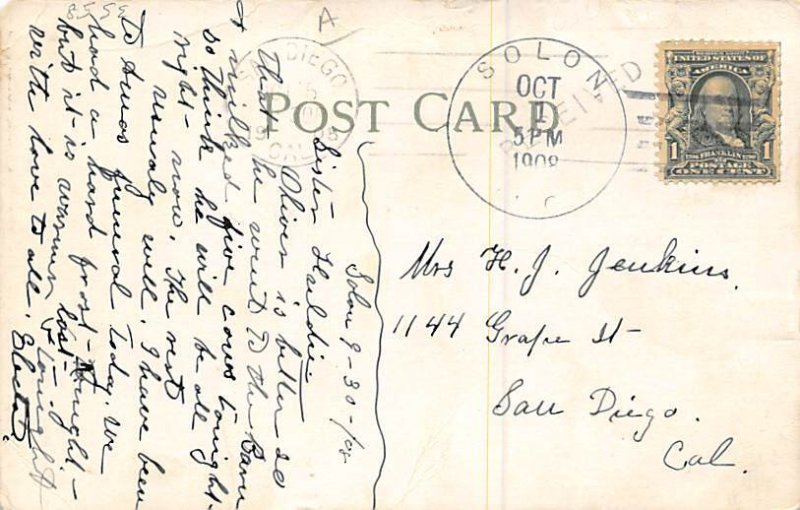 POST CARD
SAN DIEGO
CAL.
A
SOLON
OCT
1
5PM
1908
RECEIVED
UNITED STATES OF
AMERICA
FRANKLIN
1 1
ONE CENT
Mrs H. J. Jenkins.
1144 Grape St-
San Diego.
Cal.
Solon 9-30-/08
Sister Haldie.
Oliver is better so
that he went to the Barn
& milked five cows tonight-
so think he will be all
right- now. The rest
usualy well. I have been
to Amos funeral today. We
had a hard frost- last- night-
but it- is warmer tonight
with love to all. Electa